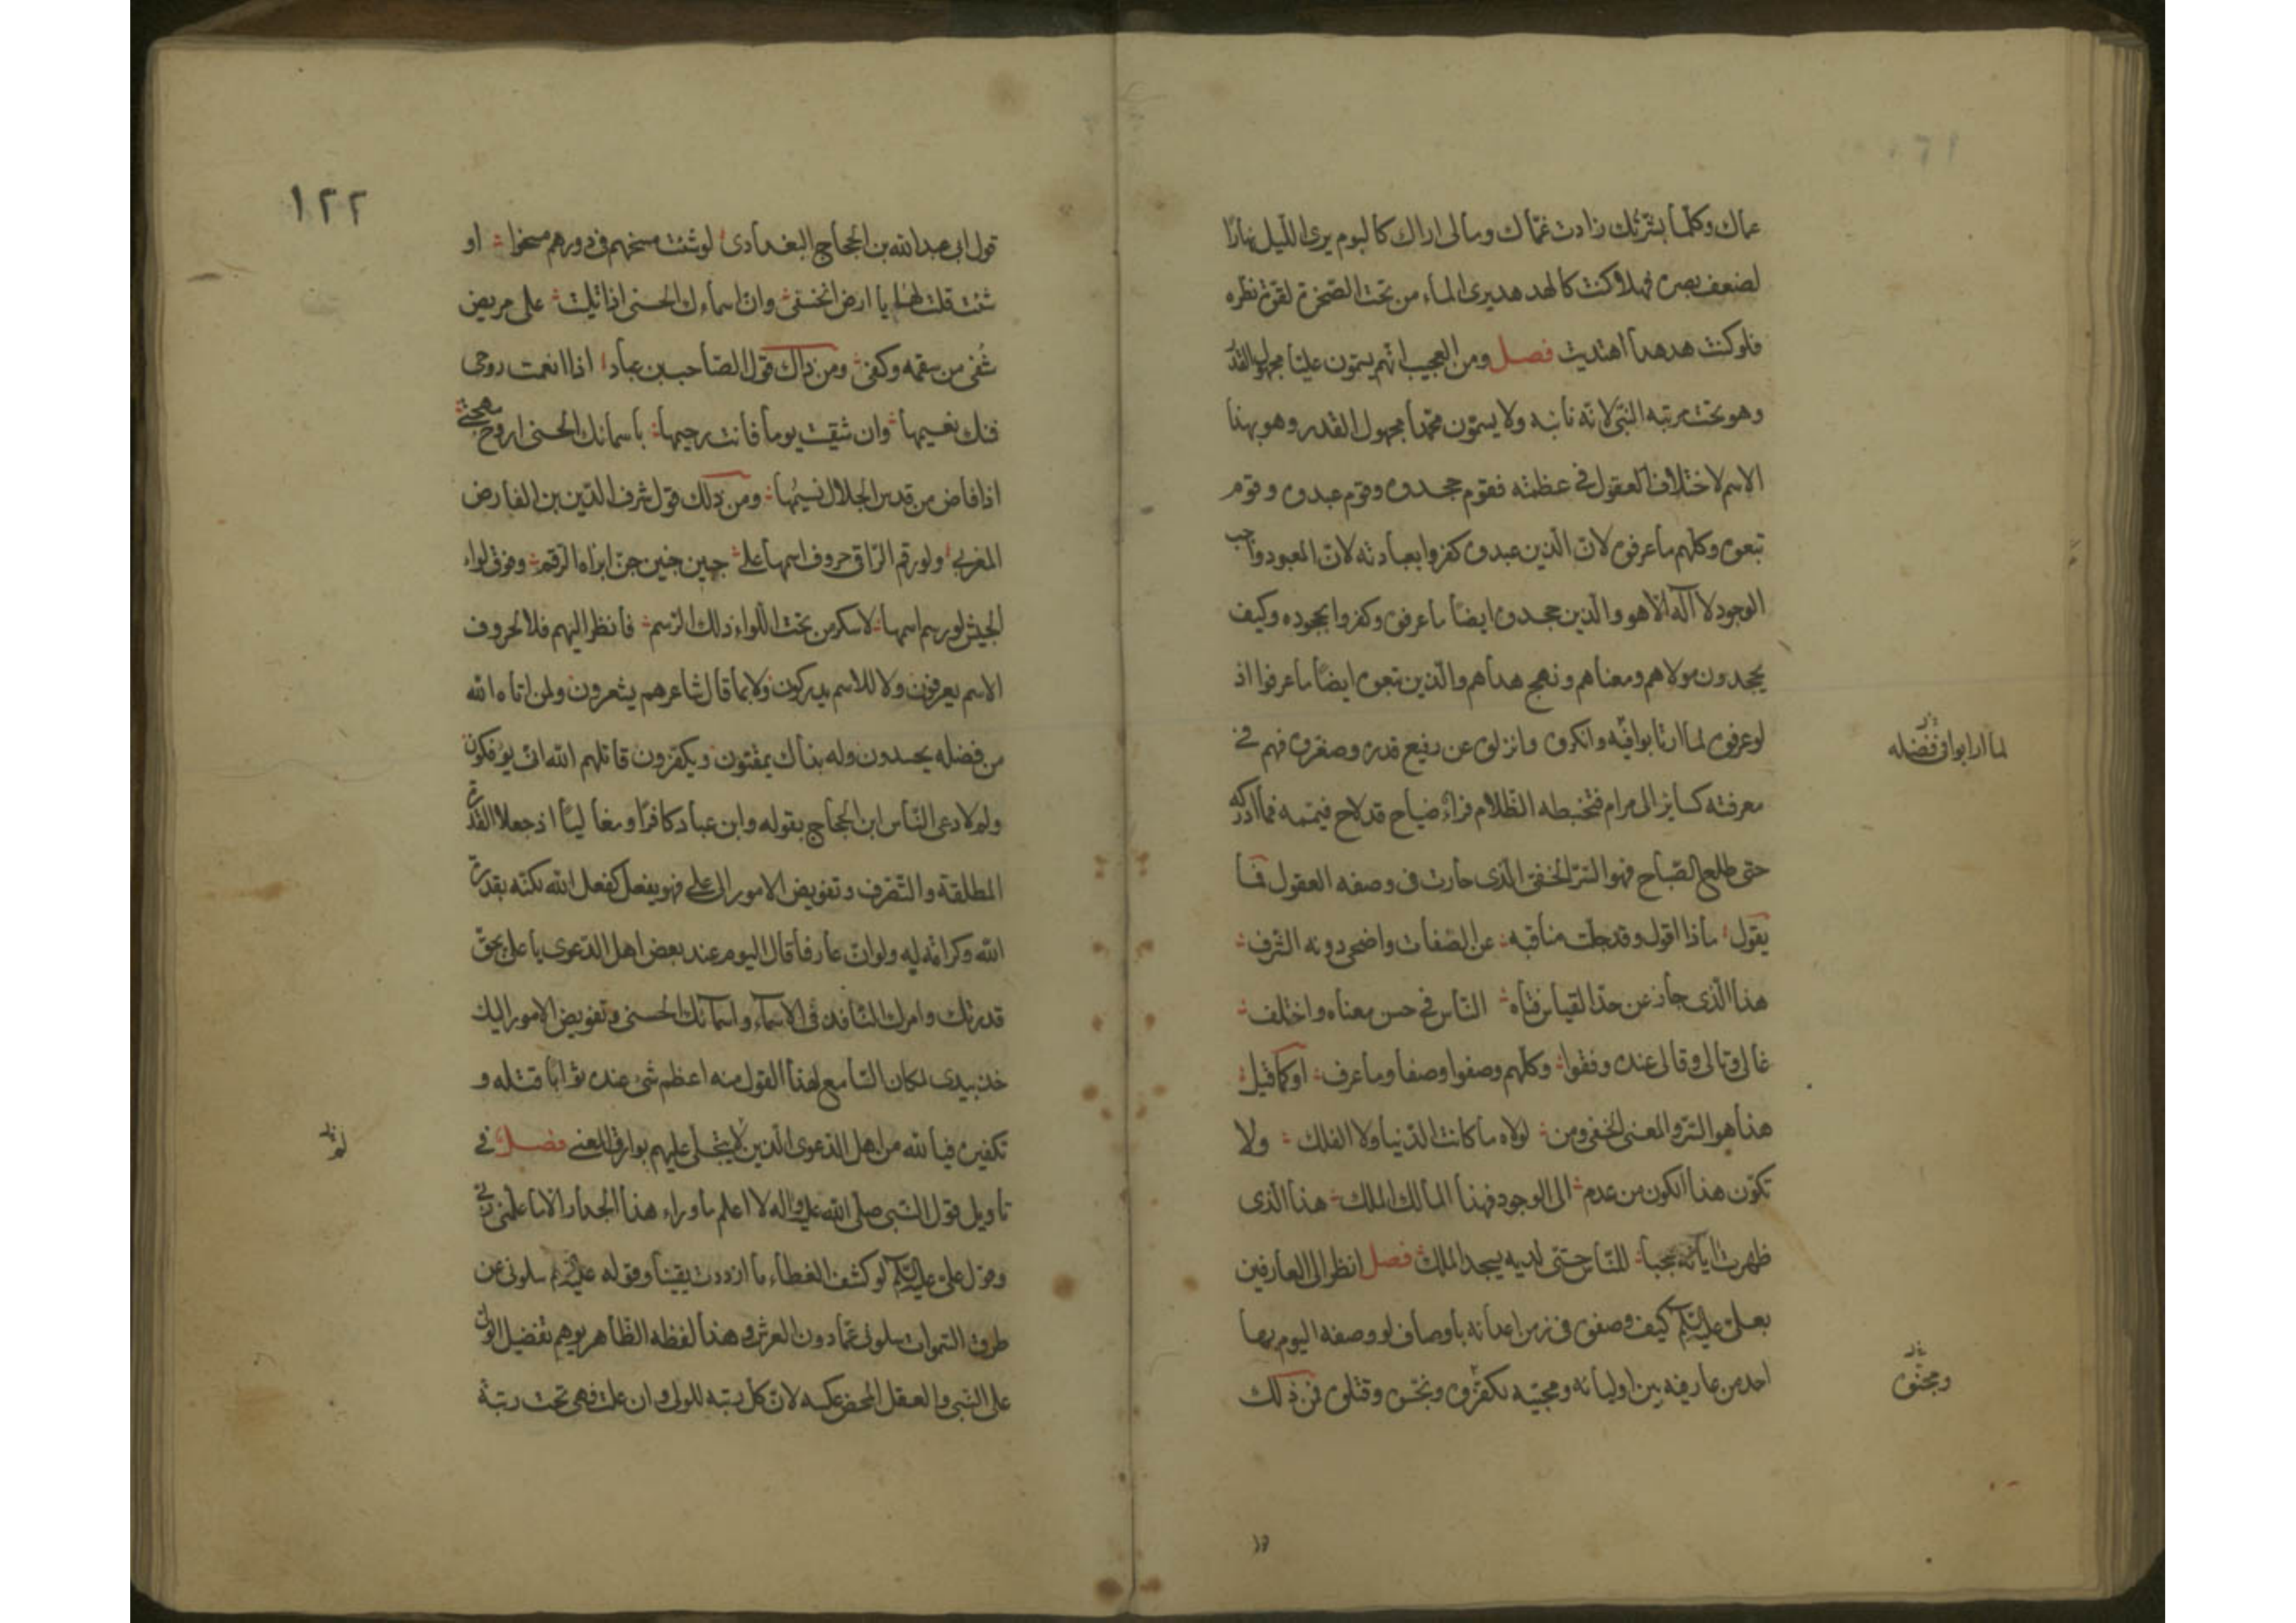 عماك وكلّما بشّرتك زادت غمّاك ومالى اراك كالبوم يرى اللّيل نهارًا
لضعف بصره فهلا كنت كالهدهد يرى الماء من تحت الصّخرة لقوّة نظره
فلو كنت هدهدا اهتديت فصل ومن العجيب انّهم يسمّون عليّا مجهول القدر
وهو تحت مرتبه النّبى لانّه نائبه ولا يسمّون محمّدا مجهول القدر وهو بهذا
الاسم لاختلاف العقول فى عظمته فقوم جحدوه وقوم عبدوه وقوم
تبعوه وكلّهم ما عرفوه لانّ الّذين عبدوه كفروا بعبادته لانّ المعبود واجب
الوجود لا اله الّا هو والّذين جحدوه ايضًا ما عرفوه وكفروا بجحوده وكيف
يجحدون مولاهم ومعناهم ونهج هداهم والّذين تبعوه ايضًا ما عرفوا اذ
لو عرفوه لما ارتابوا فيه وانكروه وانزلوه عن رفيع قدره وصغروه فهم فى
لما ارتابوا فى فضله
معرفته كسائر الى مرام فتخبطه الظّلام فرأى ضياح قد لاح فيتمه فما ادركه
حتى طلع الصّباح فهو السّرّ الخفىّ الّذى حارت فى وصفه العقول فما
يقول ماذا اقول وقد جلّت مناقبه عن الصّفات واضحى دونه الشّرف
هذا الّذى جاز عن حدّ القياس فتاه النّاس فى حسن معناه واختلف
غالى وتالى وقالى عنده وقفوا وكلّهم وصفوا وصفا وما عرف او كما قيل
هذا هو السّرّ والمعنى الخفى ومن لولاه ما كانت الدّنيا ولا الفلك ولا
تكوّن هذا الكون من عدم الى الوجود فهذا المالك الملك هذا الّذى
ظهرت اياته عجبا للنّاس حتّى لديه يسجد الملك فصل انظر الى العارفين
بعلىّ عليه السّلام كيف وصفوه فى زمن اعدائه باوصاف لو وصفه اليوم بها
احد من عارفيه بين اوليائه ومحبّيه لكفّروه ونجّسوه وقتلوه فمن ذلك
١٢٢
قول ابى عبدالله بن الحجاج البغدادى لو شئت مسخهم فى دورهم مسخوا او
شئت قلت لهم يا ارض انخسفى وانّ اسماءك الحسنى اذا تليت على مريض
شُفى من سقمه وكفى ومن ذاك قول الصّاحب بن عباد اذا انعمت روحى
فمنك نعيمها وان شقيت يوما فانت رحيمها باسمائك الحسنى اروح مهجتى
اذا فاض من قدس الجلال نسيمُها ومن ذلك قول شرف الدّين بن الفارض
المغربى ولو رقم الرّاقى حروف اسمها على جبين جنين جنّ ابراه الرّقم وفوق لواء
الجيش لو رسم اسمها لاسكر من تحت اللّواء ذلك الرّسم فانظر اليهم فلا لحروف
الاسم يعرفون ولا للاسم يدركون ولا بما قال شاعرهم يشعرون ولمن اتاه الله
من فضله يحسدون وله بذاك يمقتون ويكفّرون قاتلهم الله انّى يؤفكون
ولم لا دعى النّاس ابن الحجاج بقوله وابن عباد كافرًا ومغاليًا اذ جعلا القدرة
المطلقة والتّصرف وتفويض الامور الى على فهو يفعل كفعل الله لكنّه بقدرة
الله وكرامته لديه ولو انّ عارفا قال اليوم عند بعض اهل الدّعوى يا على بحقّ
قدرتك وامرك النّافذ فى الاشياء واسمائك الحسنى وتفويض الامور اليك
خذ بيدى لكان السّامع لهذا القول منه اعظم شئ عنده ثوابًا قتله و
تكفيره فيا لله من اهل الدّعوى الّذين لا يتجلّى عليهم بوارق المعنى فصل فى
تأويل قول النّبى صلّى الله عليه واله لا اعلم ما وراء هذا الجدار الّا ما علّمنى ربّى
وقول علىّ عليه السّلام لو كشف الغطاء ما ازددت يقينا وقوله عليه السّلام سلونى عن
طرق السّموات سلونى عمّا دون العرش وهذا لفظه الظّاهر يوهم تفضيل الولى
على النّبى والعقل المحض عكسه لانّ كل رتبه للولى وان علت فهى تحت رتبة